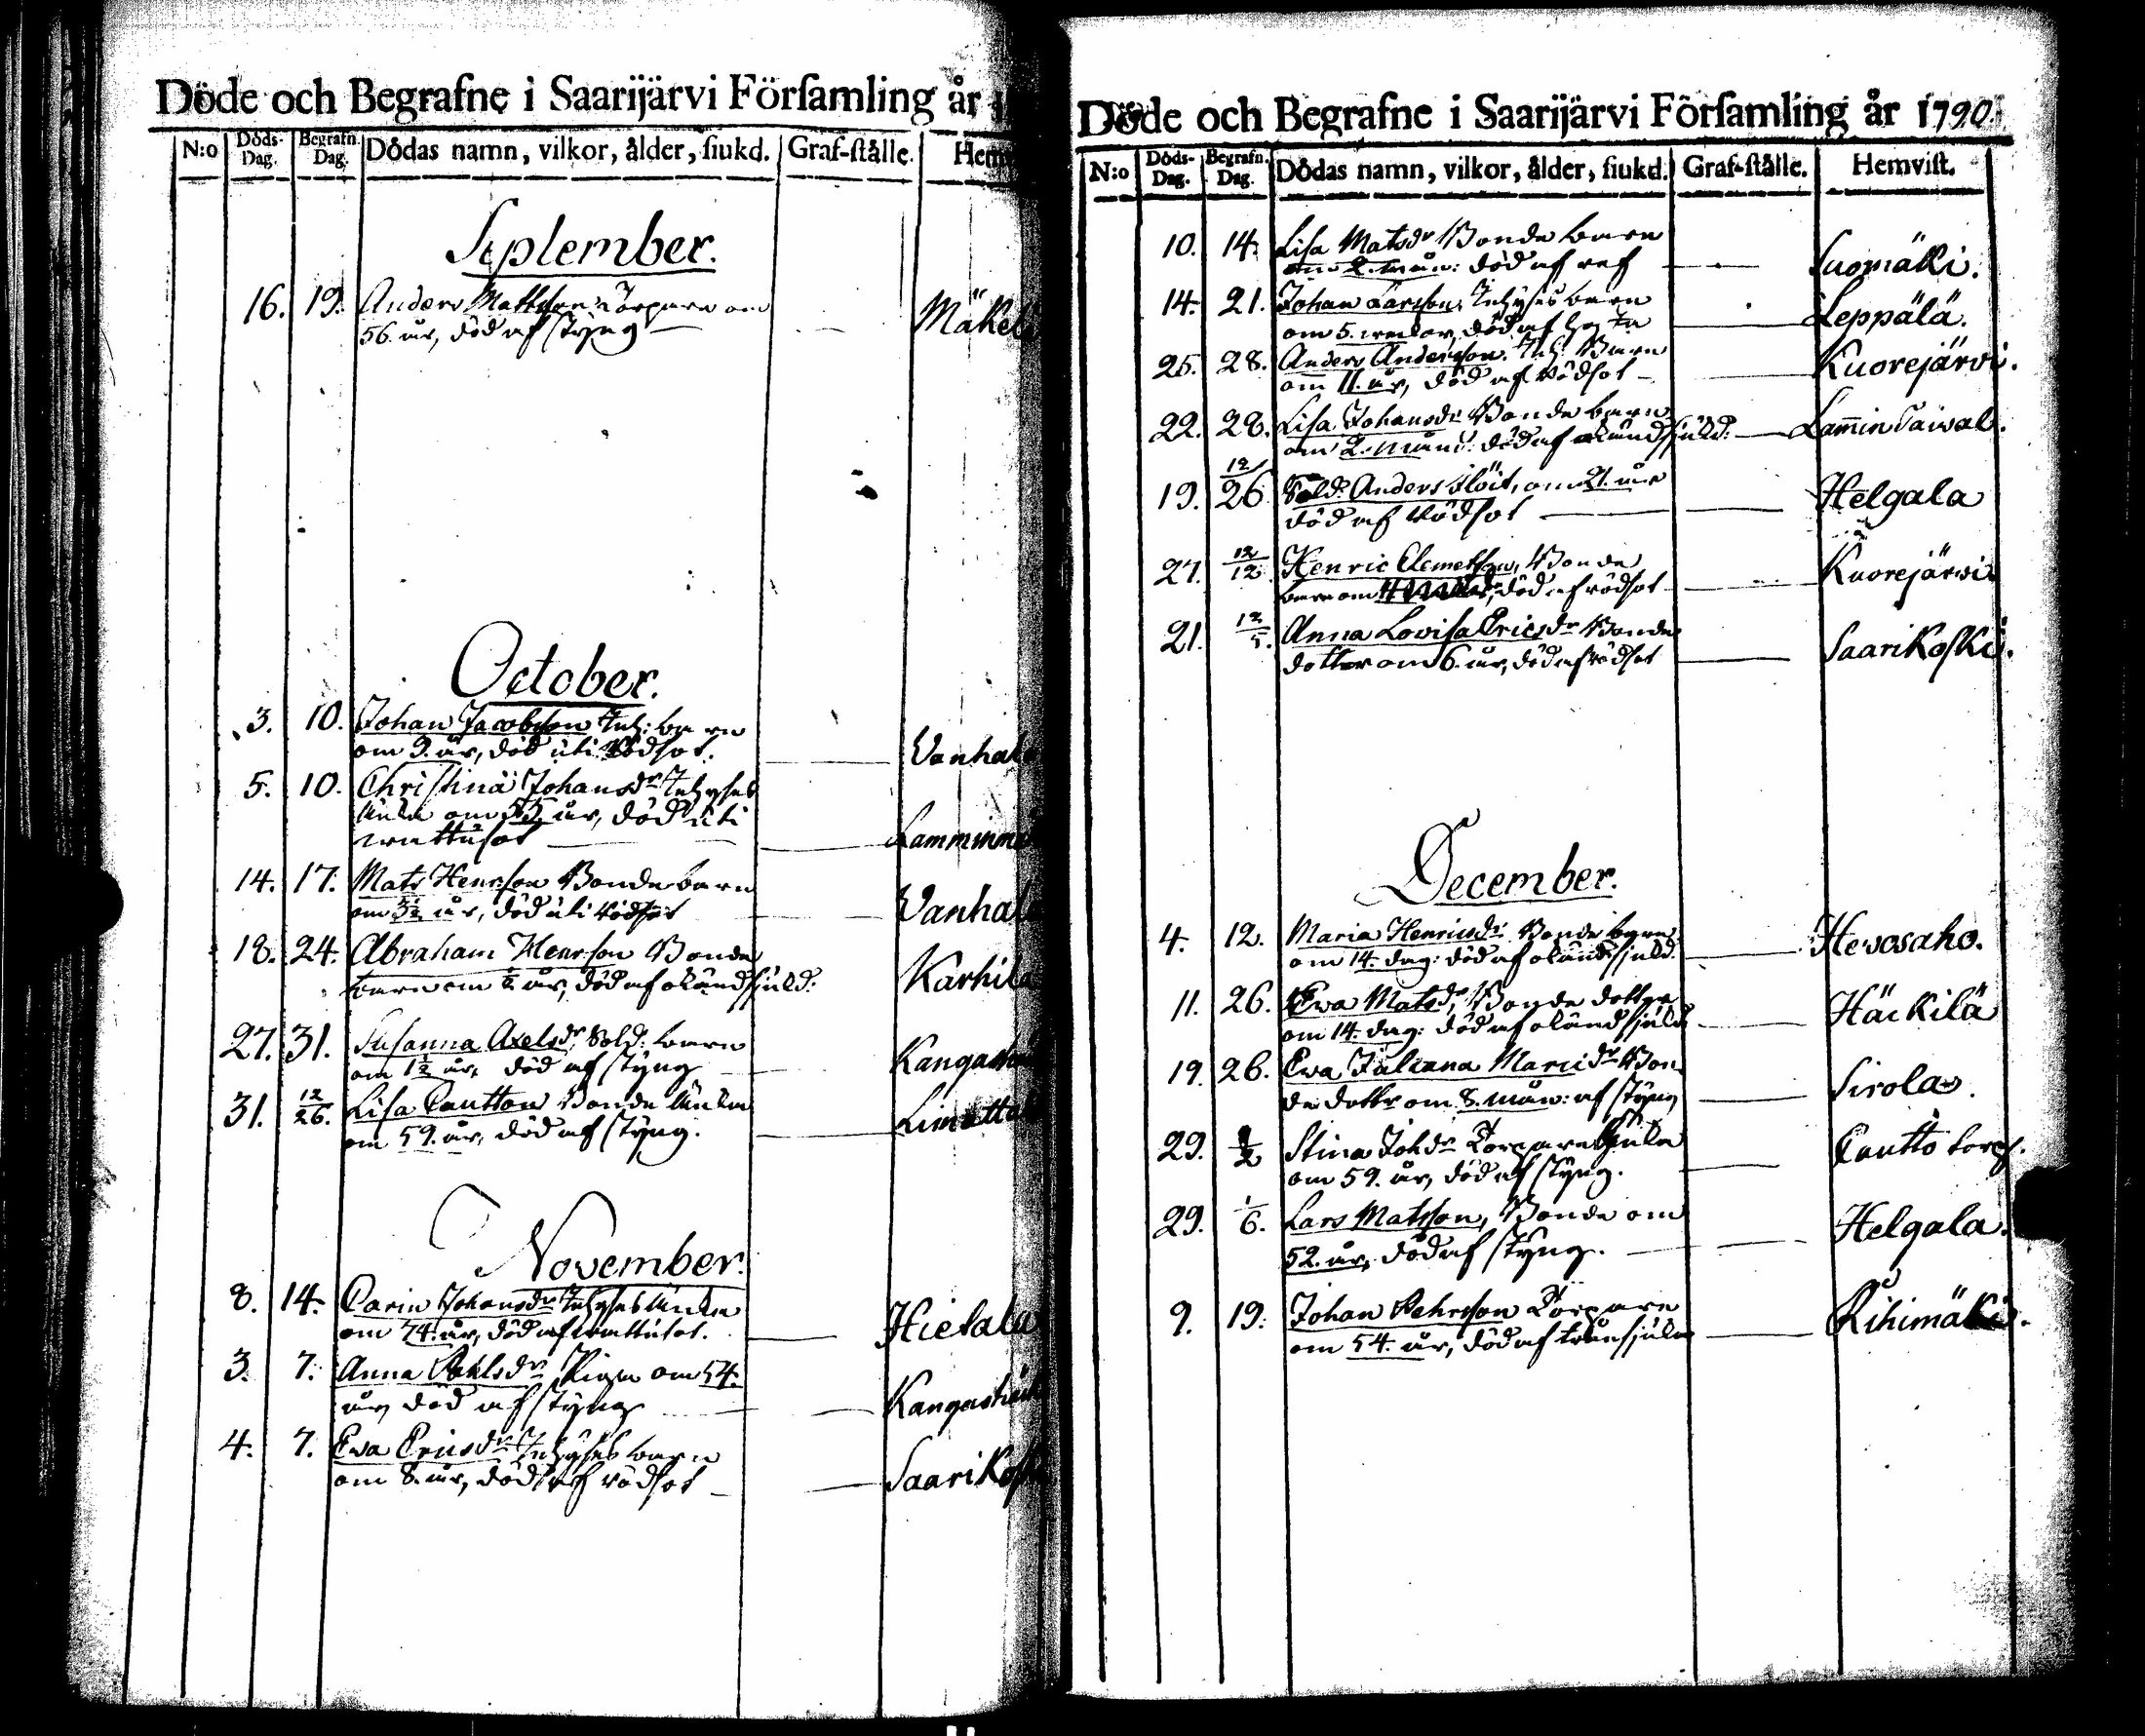 Döde och Begrafne i Saarijärvi Förſamling år
N:o Döds-Dag. Begrafn. Dag. Dödas namn, vilkor, ålder, ſiukd. Graf-ſtälle.
September.
16. 19. Anders Mattsson Torpare om
56. år, död af styng
October.
3. 10. Johan Jacobsson Inh: barn
om 9. år, död uti rödsot.
5. 10. Christina Johansdr Inhyses
Enka om 55 år, död uti
wattusot
14. 17. Mats Henrsson Bonde barn
om år, död uti rödsot
18. 24. Abraham Henrsson Bonde
barn om ½ år, död af okänd sjukd.
Karhila
27. 31. Susanna Axelsdr Sold: barn
om 1½ år, död af styng
31. 12/26. Lisa Pautton Bonde Enka
om 59. år, död af styng.
November.
8. 14. Carin Johansdr Inhyses Enka
om 74. år, död af wattusot.
Hietala
3. 7. Anna Påhlsdr Piga om 54.
år, död af styng
4. 7. Ewa Ericsdr Inhyses barn
om 8. år, död af rödsot
Döde och Begrafne i Saarijärvi Förſamling år 1790.
N:o Döds-Dag. Begrafn. Dag. Dödas namn, vilkor, ålder, ſiukd. Graf-ſtälle. Hemviſt.
10. 14. Lisa Matsdr Bonde barn
om 2. mån: död af ref Suomäki.
14. 21. Johan Larsson, Inhyses barn
om 5. wekor, död af hosta Leppälä.
25. 28. Anders Andersson, Inh: Barn
om 11. år, död af rödsot Kuorejärvi.
22. 28. Lisa Johansdr Bonde barn
om 2. mån: död af okänd sjukd. Lamin Taival.
19. 12/26 Sold: Anders Flöit, om 21. år
död af rödsot Helgala
27. 12/12 Henric Clemetsson, Bonde
barn om död af rödsot Kuorejärwi
21. 12/5. Anna Lovisa Ericsdr Bonde
dotter om 6. år, död af rödsot Saarikoski.
December.
4. 12. Maria Henricsdr Bonde barn
om 14. dag: död af okänd sjukd. Hewosaho.
11. 26. Ewa Matsdr, Bonde dotter
om 14. dag: död af okänd sjukd. Häckilä
19. 26. Ewa Juliana Marcidr Bon-
de dotter om 8. mån: af styng Sirola.
29. Stina Johdr Torpare Enka
om 59. år, död af styng. Pautto torp.
29. 1/6. Lars Matsson, Bonde om
52. år, död af styng. Helgala.
9. 19. Johan Pehrsson Torpare
om 54. år, död af Rihimäki.